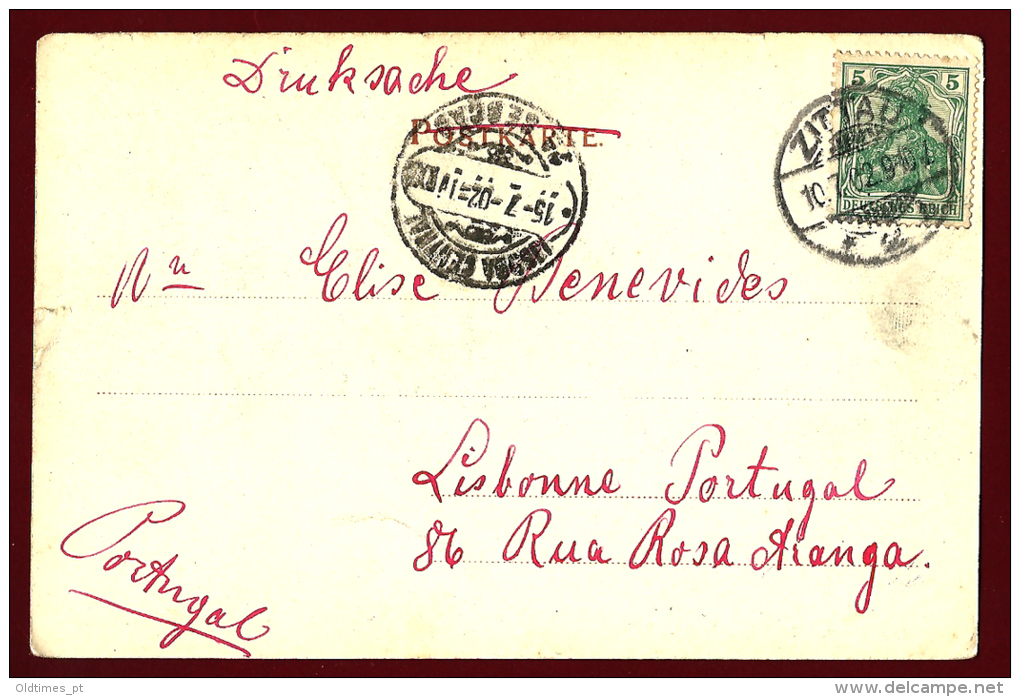 Druksache
POSTKARTE.
5 5
DEUTSCHES REICH
ZITTAU
10.7.02.9-10.V.
15-7-02=11
LISBOA CENTRAL
An Elise Benevides
Lisbonne Portugal
86 Rua Rosa Aranga.
Portugal
Oldtimes_pt
www.delcampe.net